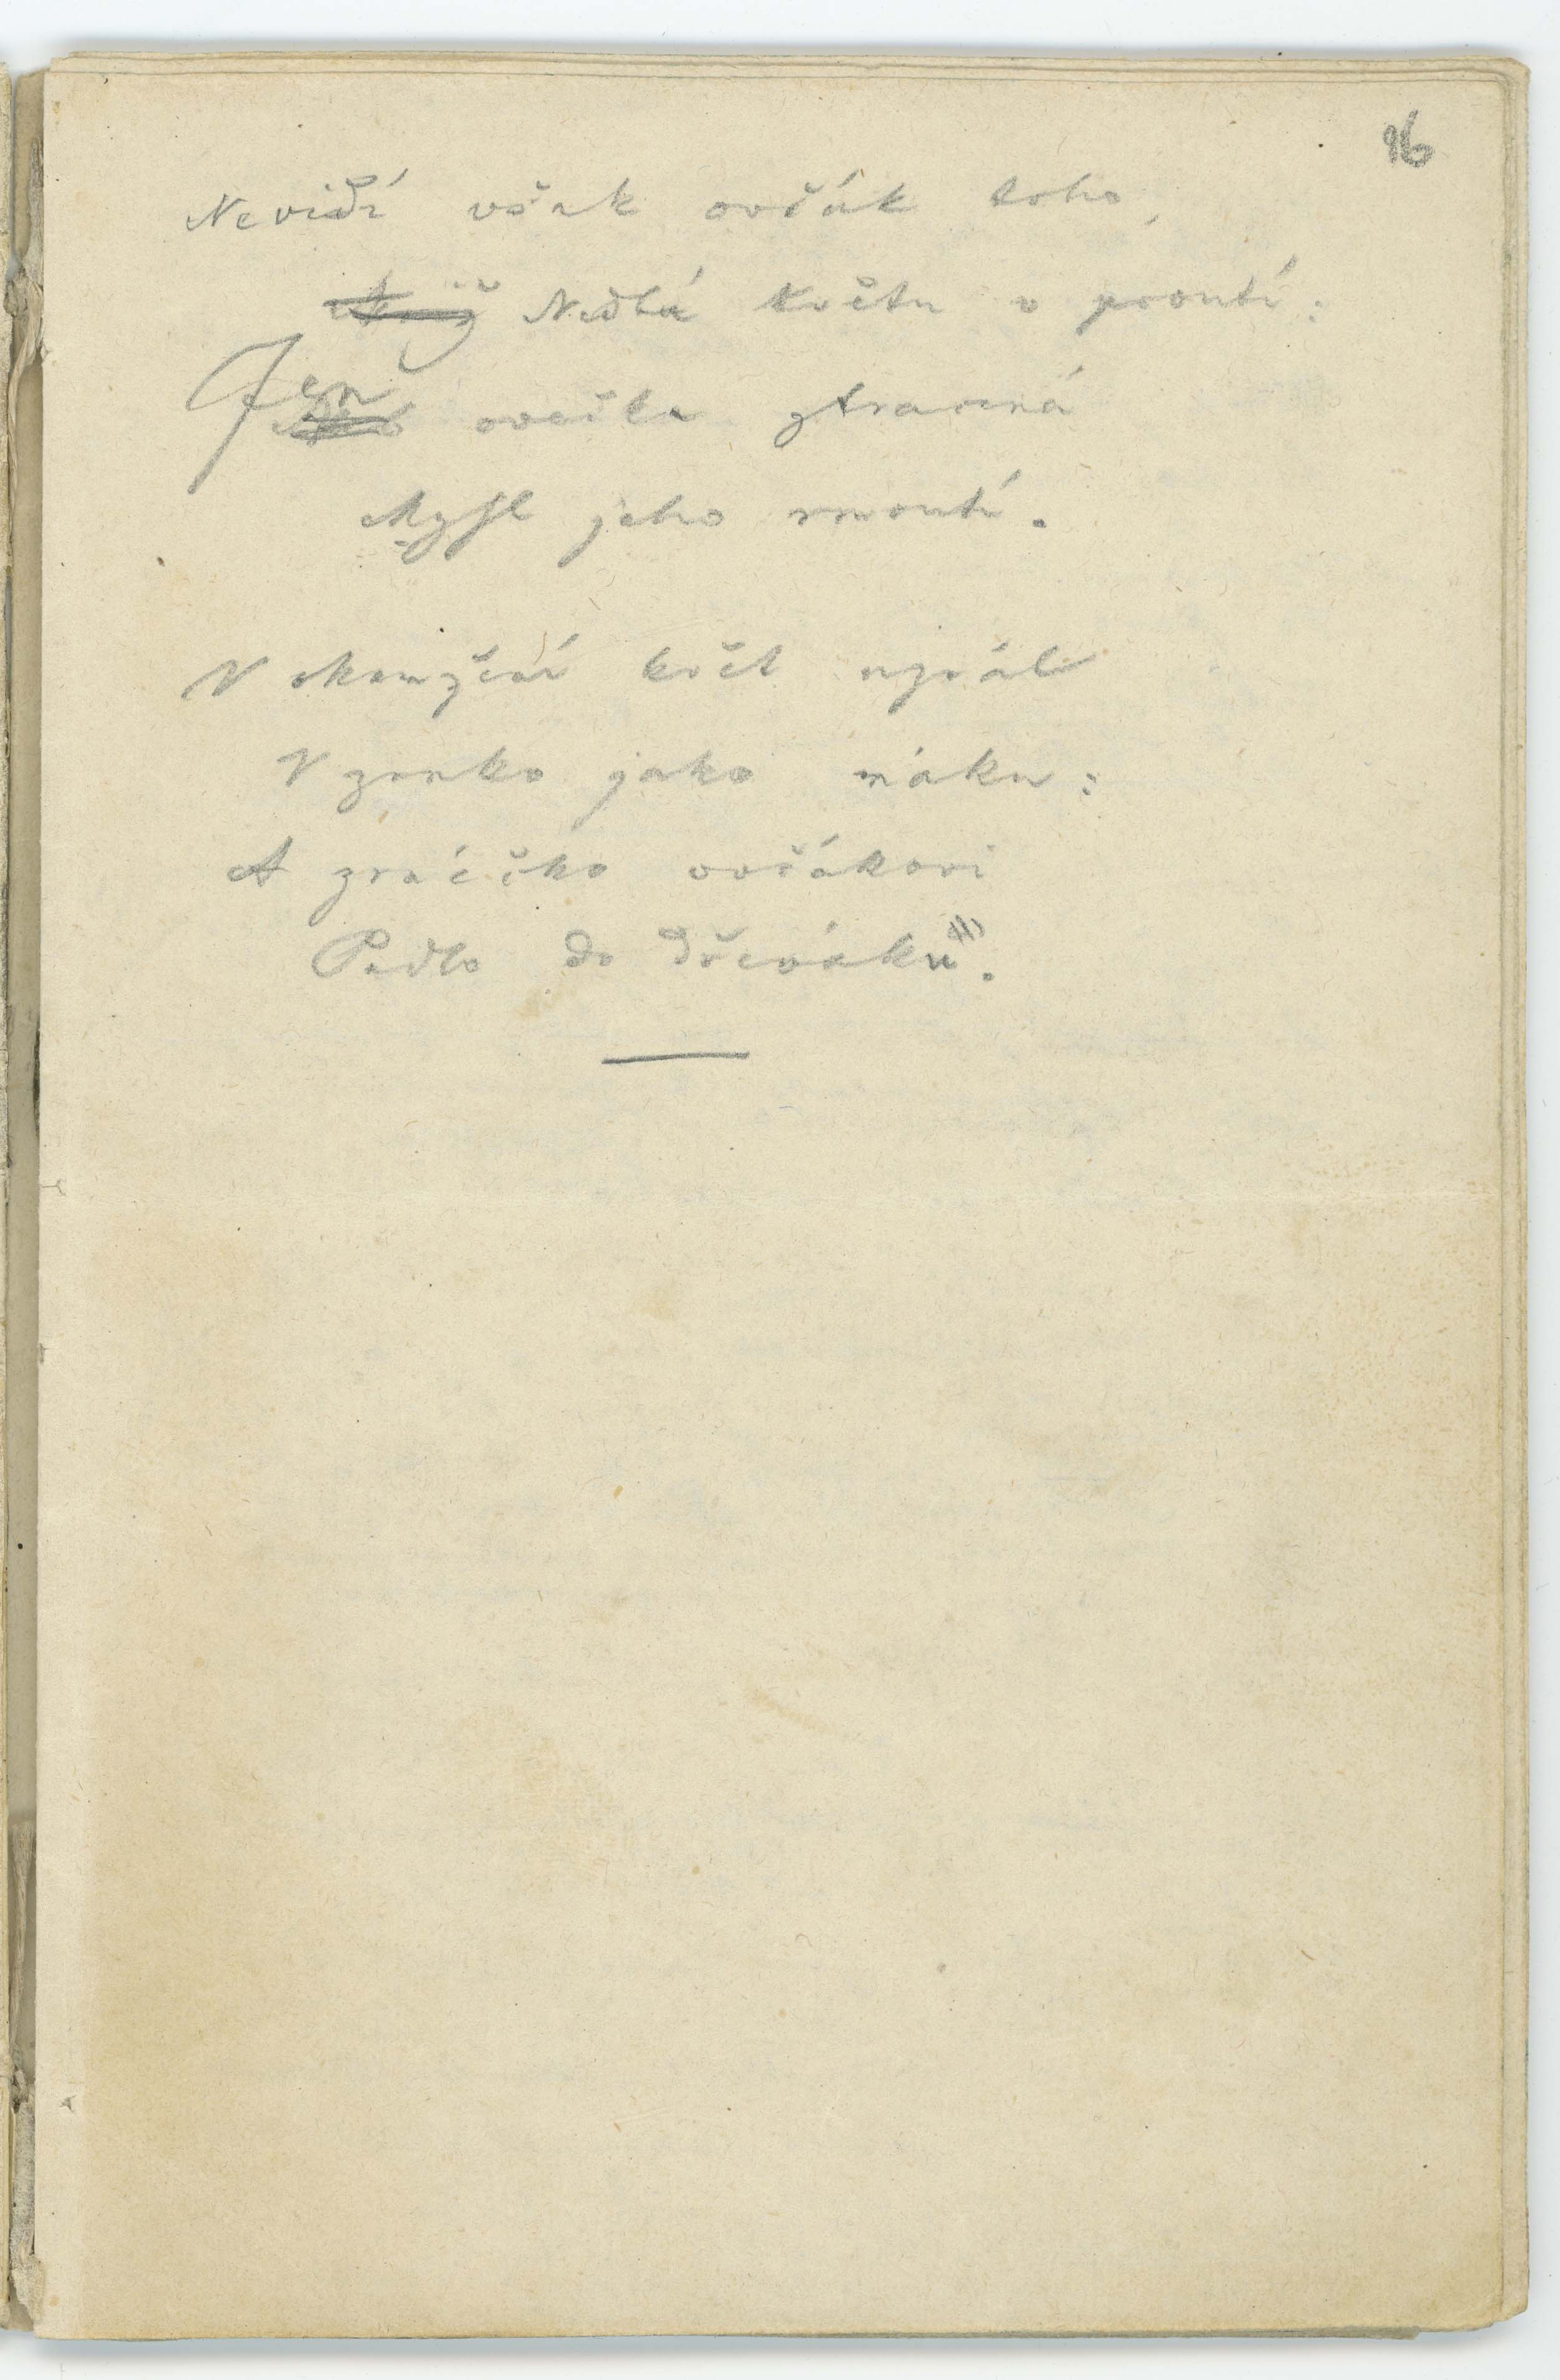 16
Nevidí však ovčák toho,
Nedbá květu v proutí:
Jen ovečka ztracená
Mysl jeho rmoutí.
V okamžení květ uzrál
V zrnko jako máku:
A zrnéčko ovčákovi
Padlo do dřeváku.